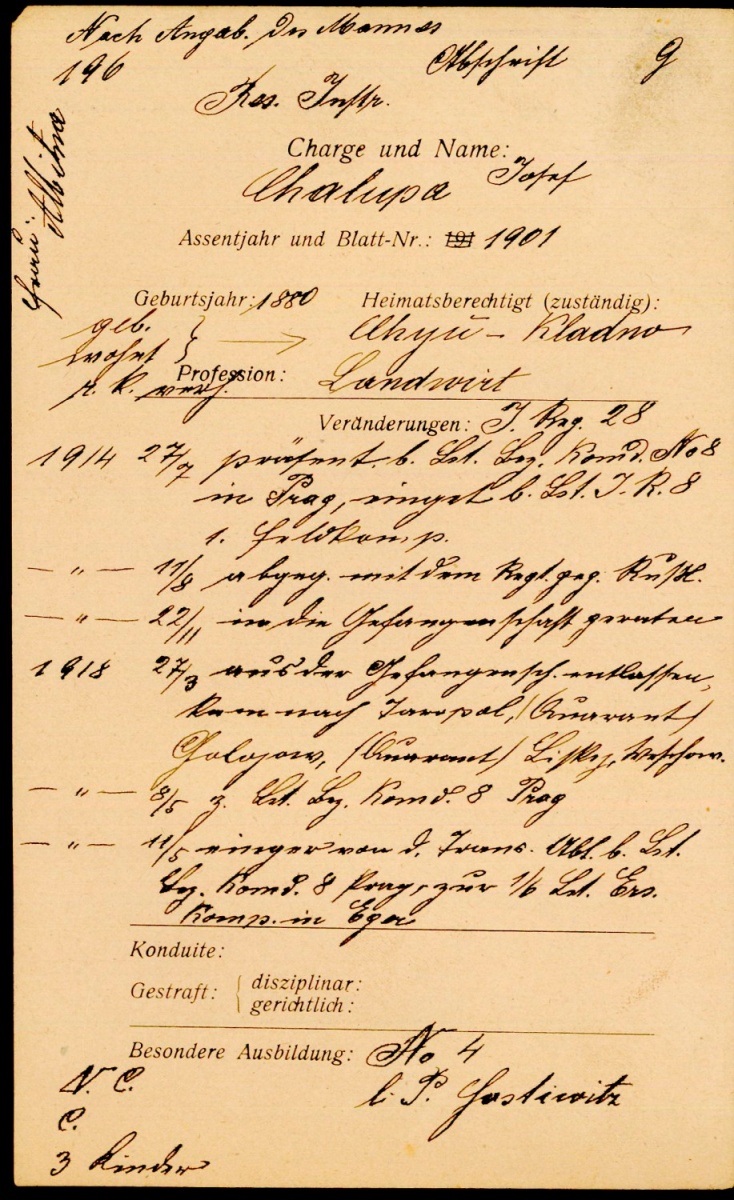 Nach Angab. des Mannes
196 Abschrift 9
Res. Instr.
Frau: Albina
Charge und Name:
Chalupa Josef
Assentjahr und Blatt-Nr.: 191 1901
Geburtsjahr: 1880 Heimatsberechtigt (zuständig):
geb.
wohnt } → Uhyú - Kladno
Profession: Landwirt
r. k. verh.
Veränderungen: I. Reg. 28
1914 27/7 präsent. b. Lst. Bez. Komd. No 8
in Prag, einget. b. Lst. I. R. 8
1. Feldkomp.
— " — 11/8 abgeg. mit dem Regt. geg. Rußl.
— " — 22/11 in die Gefangenschaft geraten
1918 27/3 aus der Gefangensch. entlassen,
kam nach Taropol, (Quarant)
(Quarant)
— " — 8/5 z. Lst. Bez. Komd. 8 Prag
— " — 11/5 einger von d. Trans. Abt. b. Lst.
Bez. Komd. 8 Prag, zur 1/6 Lst. Ers.
Komp. in Eger
Konduite:
Gestraft: { disziplinar:
gerichtlich:
Besondere Ausbildung: No 4
N. C. l. P. Hostiwitz
C.
3 Kinder